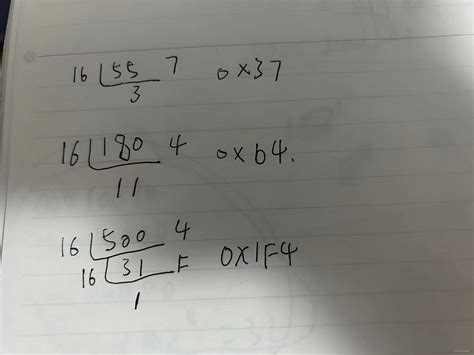 16 55 7 0x37
3
16 180 4 0xb4.
11
16 500 4
16 31 F 0X1F4
1